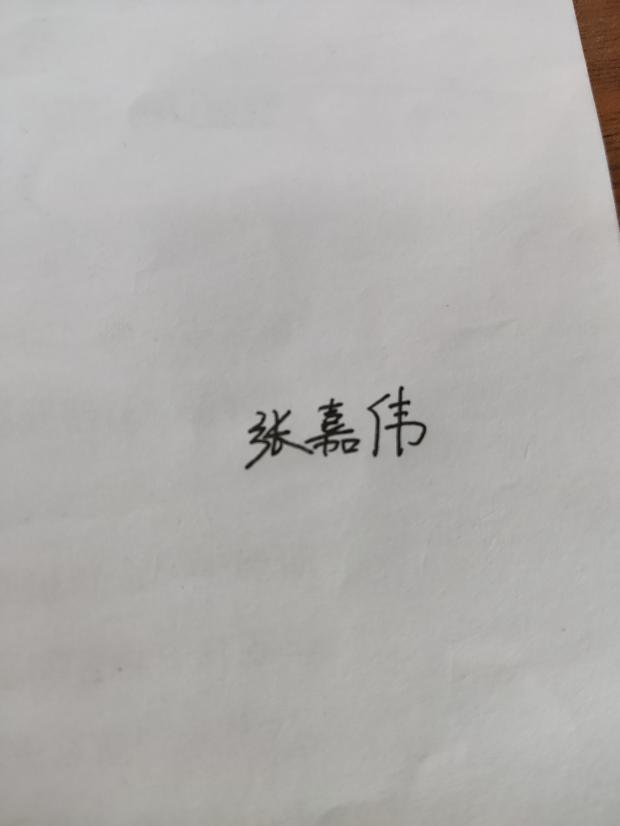 张嘉伟